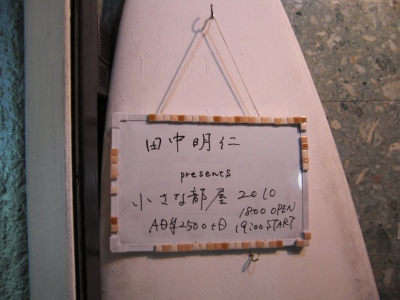 田中明仁
presents
小さな部屋 2010
1800 OPEN
AD¥2500+D 19:00 START